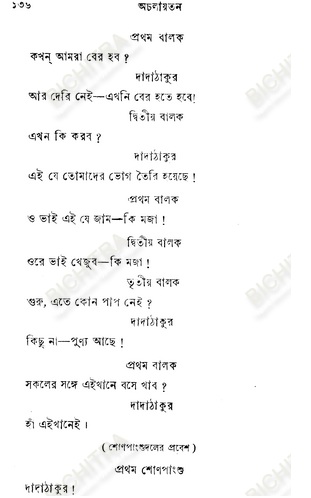 ১৩৬ অচলায়তন
প্রথম বালক
কখন্ আমরা বের হব ?
দাদাঠাকুর
আর দেরি নেই—এখনি বের হতে হবে!
দ্বিতীয় বালক
এখন কি করব ?
দাদাঠাকুর
এই যে তোমাদের ভোগ তৈরি হয়েছে !
প্রথম বালক
ও ভাই এই যে জাম—কি মজা !
দ্বিতীয় বালক
ওরে ভাই খেজুর—কি মজা !
তৃতীয় বালক
গুরু, এতে কোন পাপ নেই ?
দাদাঠাকুর
কিছু না—পুণ্য আছে !
প্রথম বালক
সকলের সঙ্গে এইখানে বসে খাব ?
দাদাঠাকুর
হাঁ এইখানেই ।
( শোণপাংশুদলের প্রবেশ )
প্রথম শোণপাংশু
দাদাঠাকুর !
BICHITRA